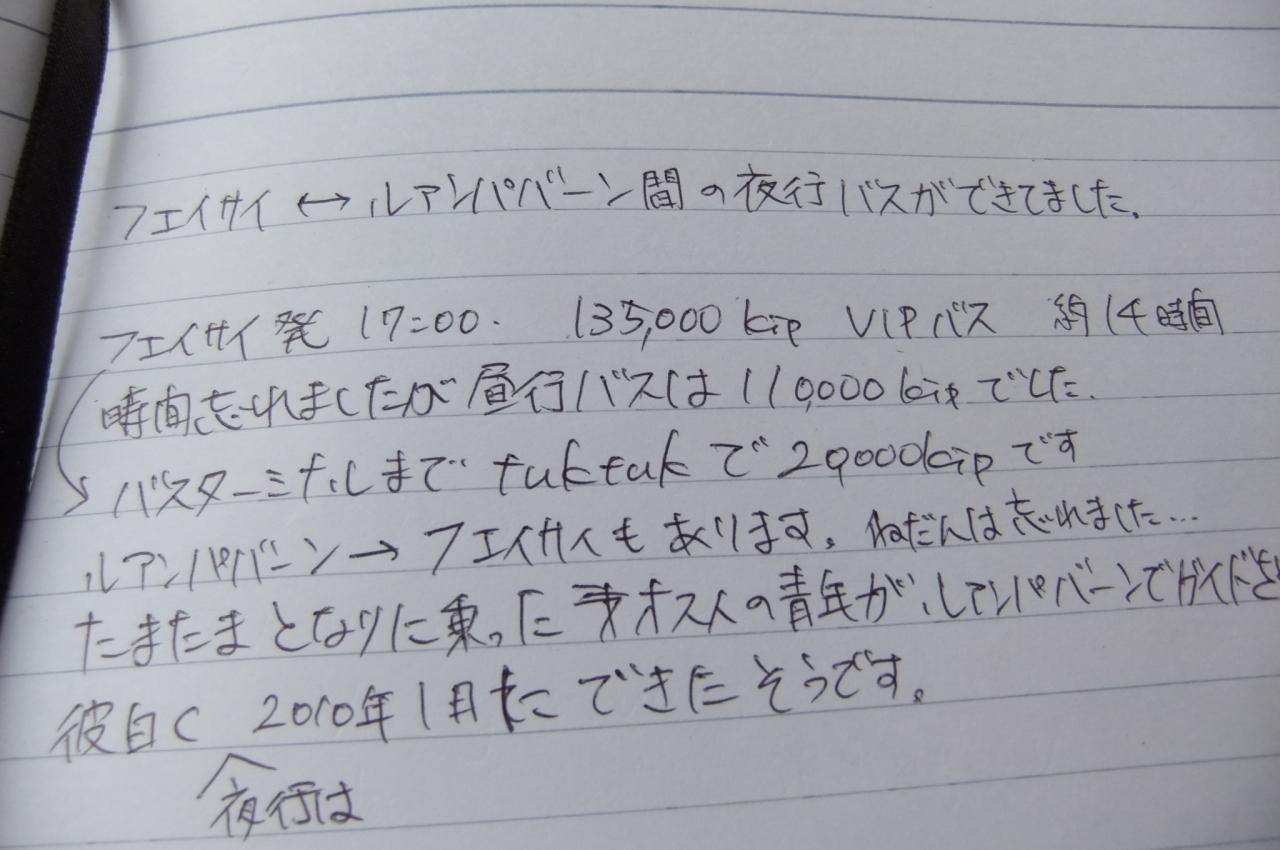 フエイサイ ↔ ルアンパバーン間の夜行バスができてました.
フエイサイ発 17:00. 135,000 kip VIPバス 約14時間
時間忘れましたが昼行バスは110,000kipでした.
バスターミナルまで tuktukで20,000kipです
ルアンパバーン→フエイサイもあります。ねだんは忘れました…
たまたまとなりに乗ったラオス人の青年がルアンパバーンでガイドを
彼曰く 2010年1月に できたそうです。
夜行は